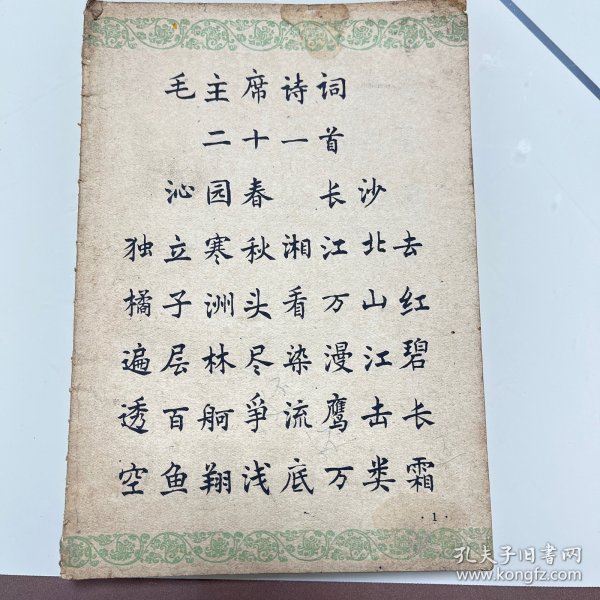 毛主席诗词
二十一首
沁园春 长沙
独立寒秋湘江北去
橘子洲头看万山红
遍层林尽染漫江碧
透百舸争流鹰击长
空鱼翔浅底万类霜
·1·
孔夫子旧书网
www.kongfz.com